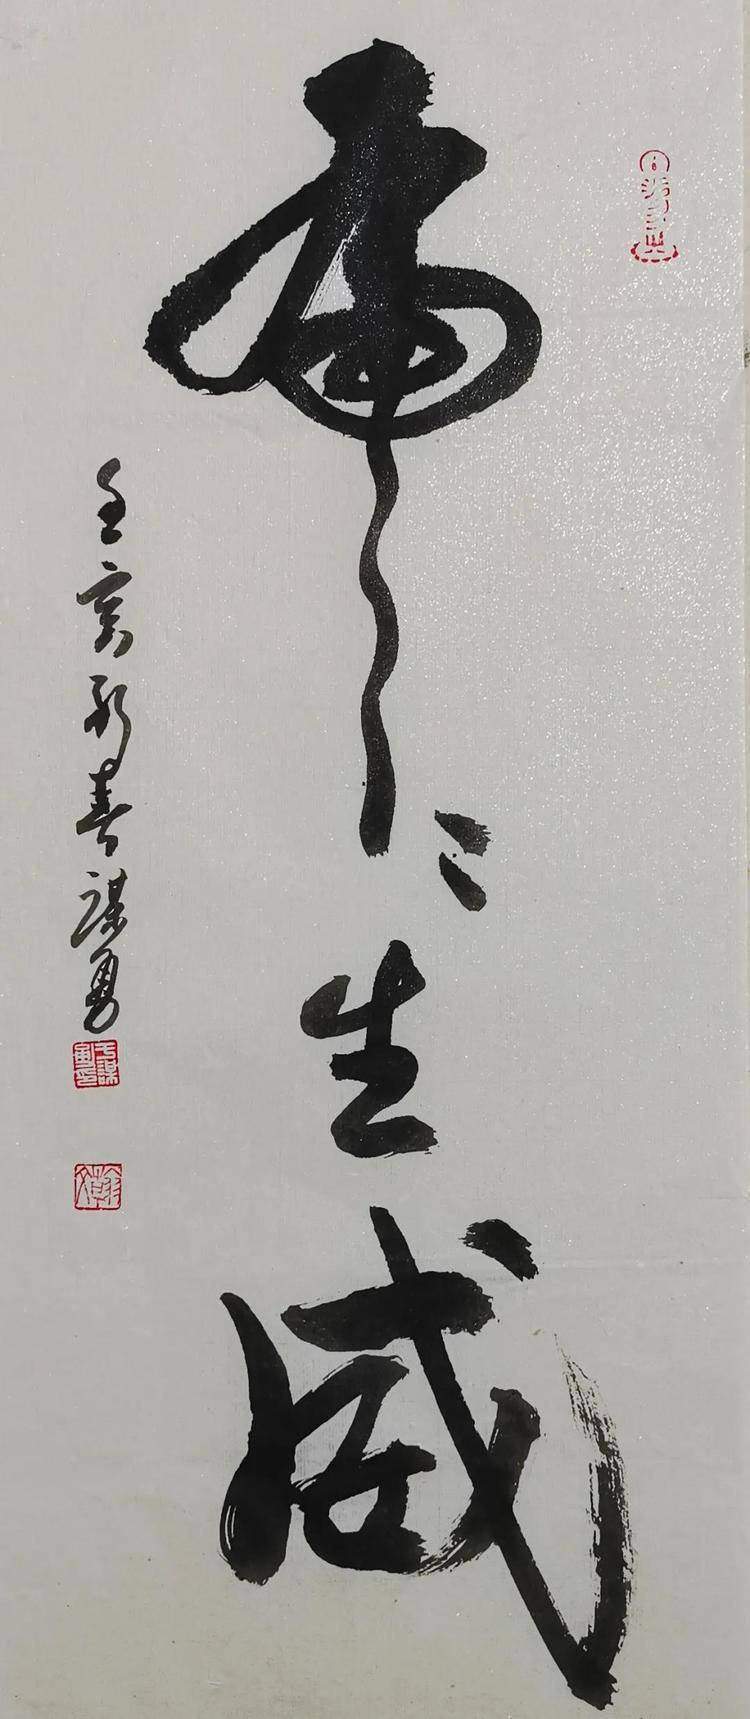 虎〻生威
壬寅新春謀勇